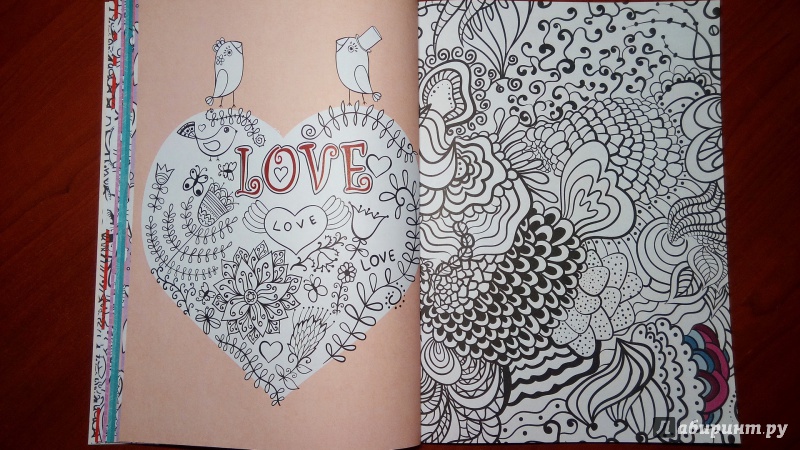 LOVE
LOVE
LOVE
Лабиринт.ру